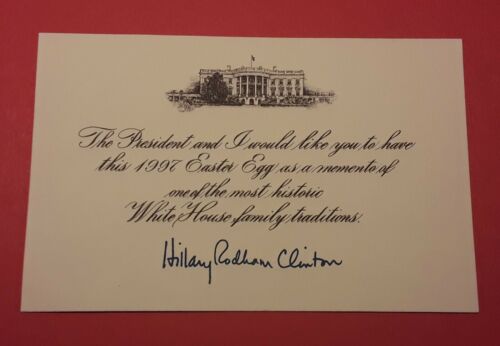 The President and I would like you to have
this 1997 Easter Egg as a memento of
one of the most historic
White House family traditions.
Hillary Rodham Clinton